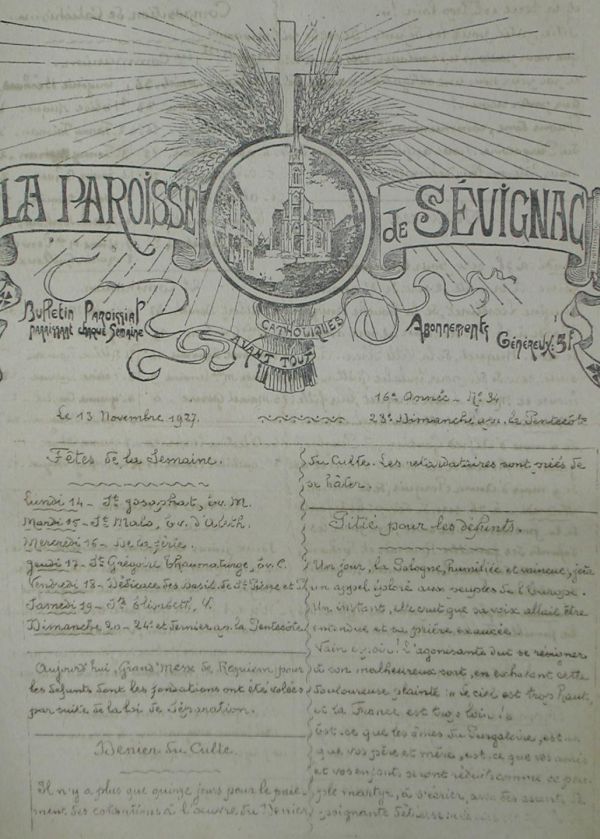 LA PAROISSE
de SÉVIGNAC
Bulletin Paroissial
paraissant chaque Semaine
CATHOLIQUES
AVANT TOUT
Abonnements
Généreux: 5f
16e Année - No 34
Le 13 Novembre 1927.
23e Dimanche ap. la Pentecôte
Fêtes de la Semaine.
Lundi 14 - St Josaphat, év. M.
Mardi 15 - St Malo, év. d'Aleth.
Mercredi 16 - De la férie.
Jeudi 17 - St Grégoire Thaumaturge, év. C.
Vendredi 18 - Dédicace des basil. de St Pierre et P.
Samedi 19 - Ste Elisabeth, V.
Dimanche 20 - 24e et dernier ap. la Pentecôte
Aujourd'hui, Grand' Messe de Requiem pour
les défunts dont les fondations ont été volées
par suite de la loi de Séparation.
Denier du Culte.
Il n'y a plus que quinze jours pour le paie-
ment des cotisations à l'œuvre du Denier
du Culte. Les retardataires sont priés de
se hâter.
Pitié pour les défunts.
Un jour, la Pologne, humiliée et vaincue, jeta
un appel éploré aux peuples de l'Europe.
Un instant, elle crut que sa voix allait être
entendue et sa prière exaucée.
Vain espoir! l'agonisante dut se résigner
à son malheureux sort, en exhalant cette
douloureuse plainte: "le ciel est trop haut,
et la France est trop loin!"
Est-ce que les âmes du Purgatoire, est-ce
que vos père et mère, est-ce que vos amis
et vos enfants seront réduits comme ce peu-
ple martyr, à s'écrier, avec des accents